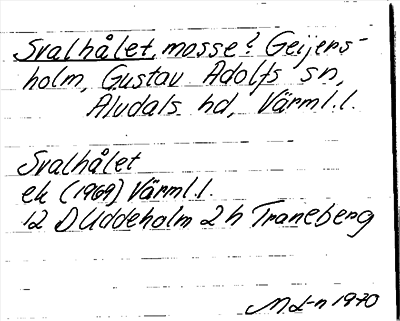 Svalhålet, mosse? Geijers-
holm, Gustav Adolfs sn,
Älvdals hd, Värml.l.
Svalhålet
ek (1969) Värml.l.
12 D Uddeholm 2 h Traneberg
M L-n 1970